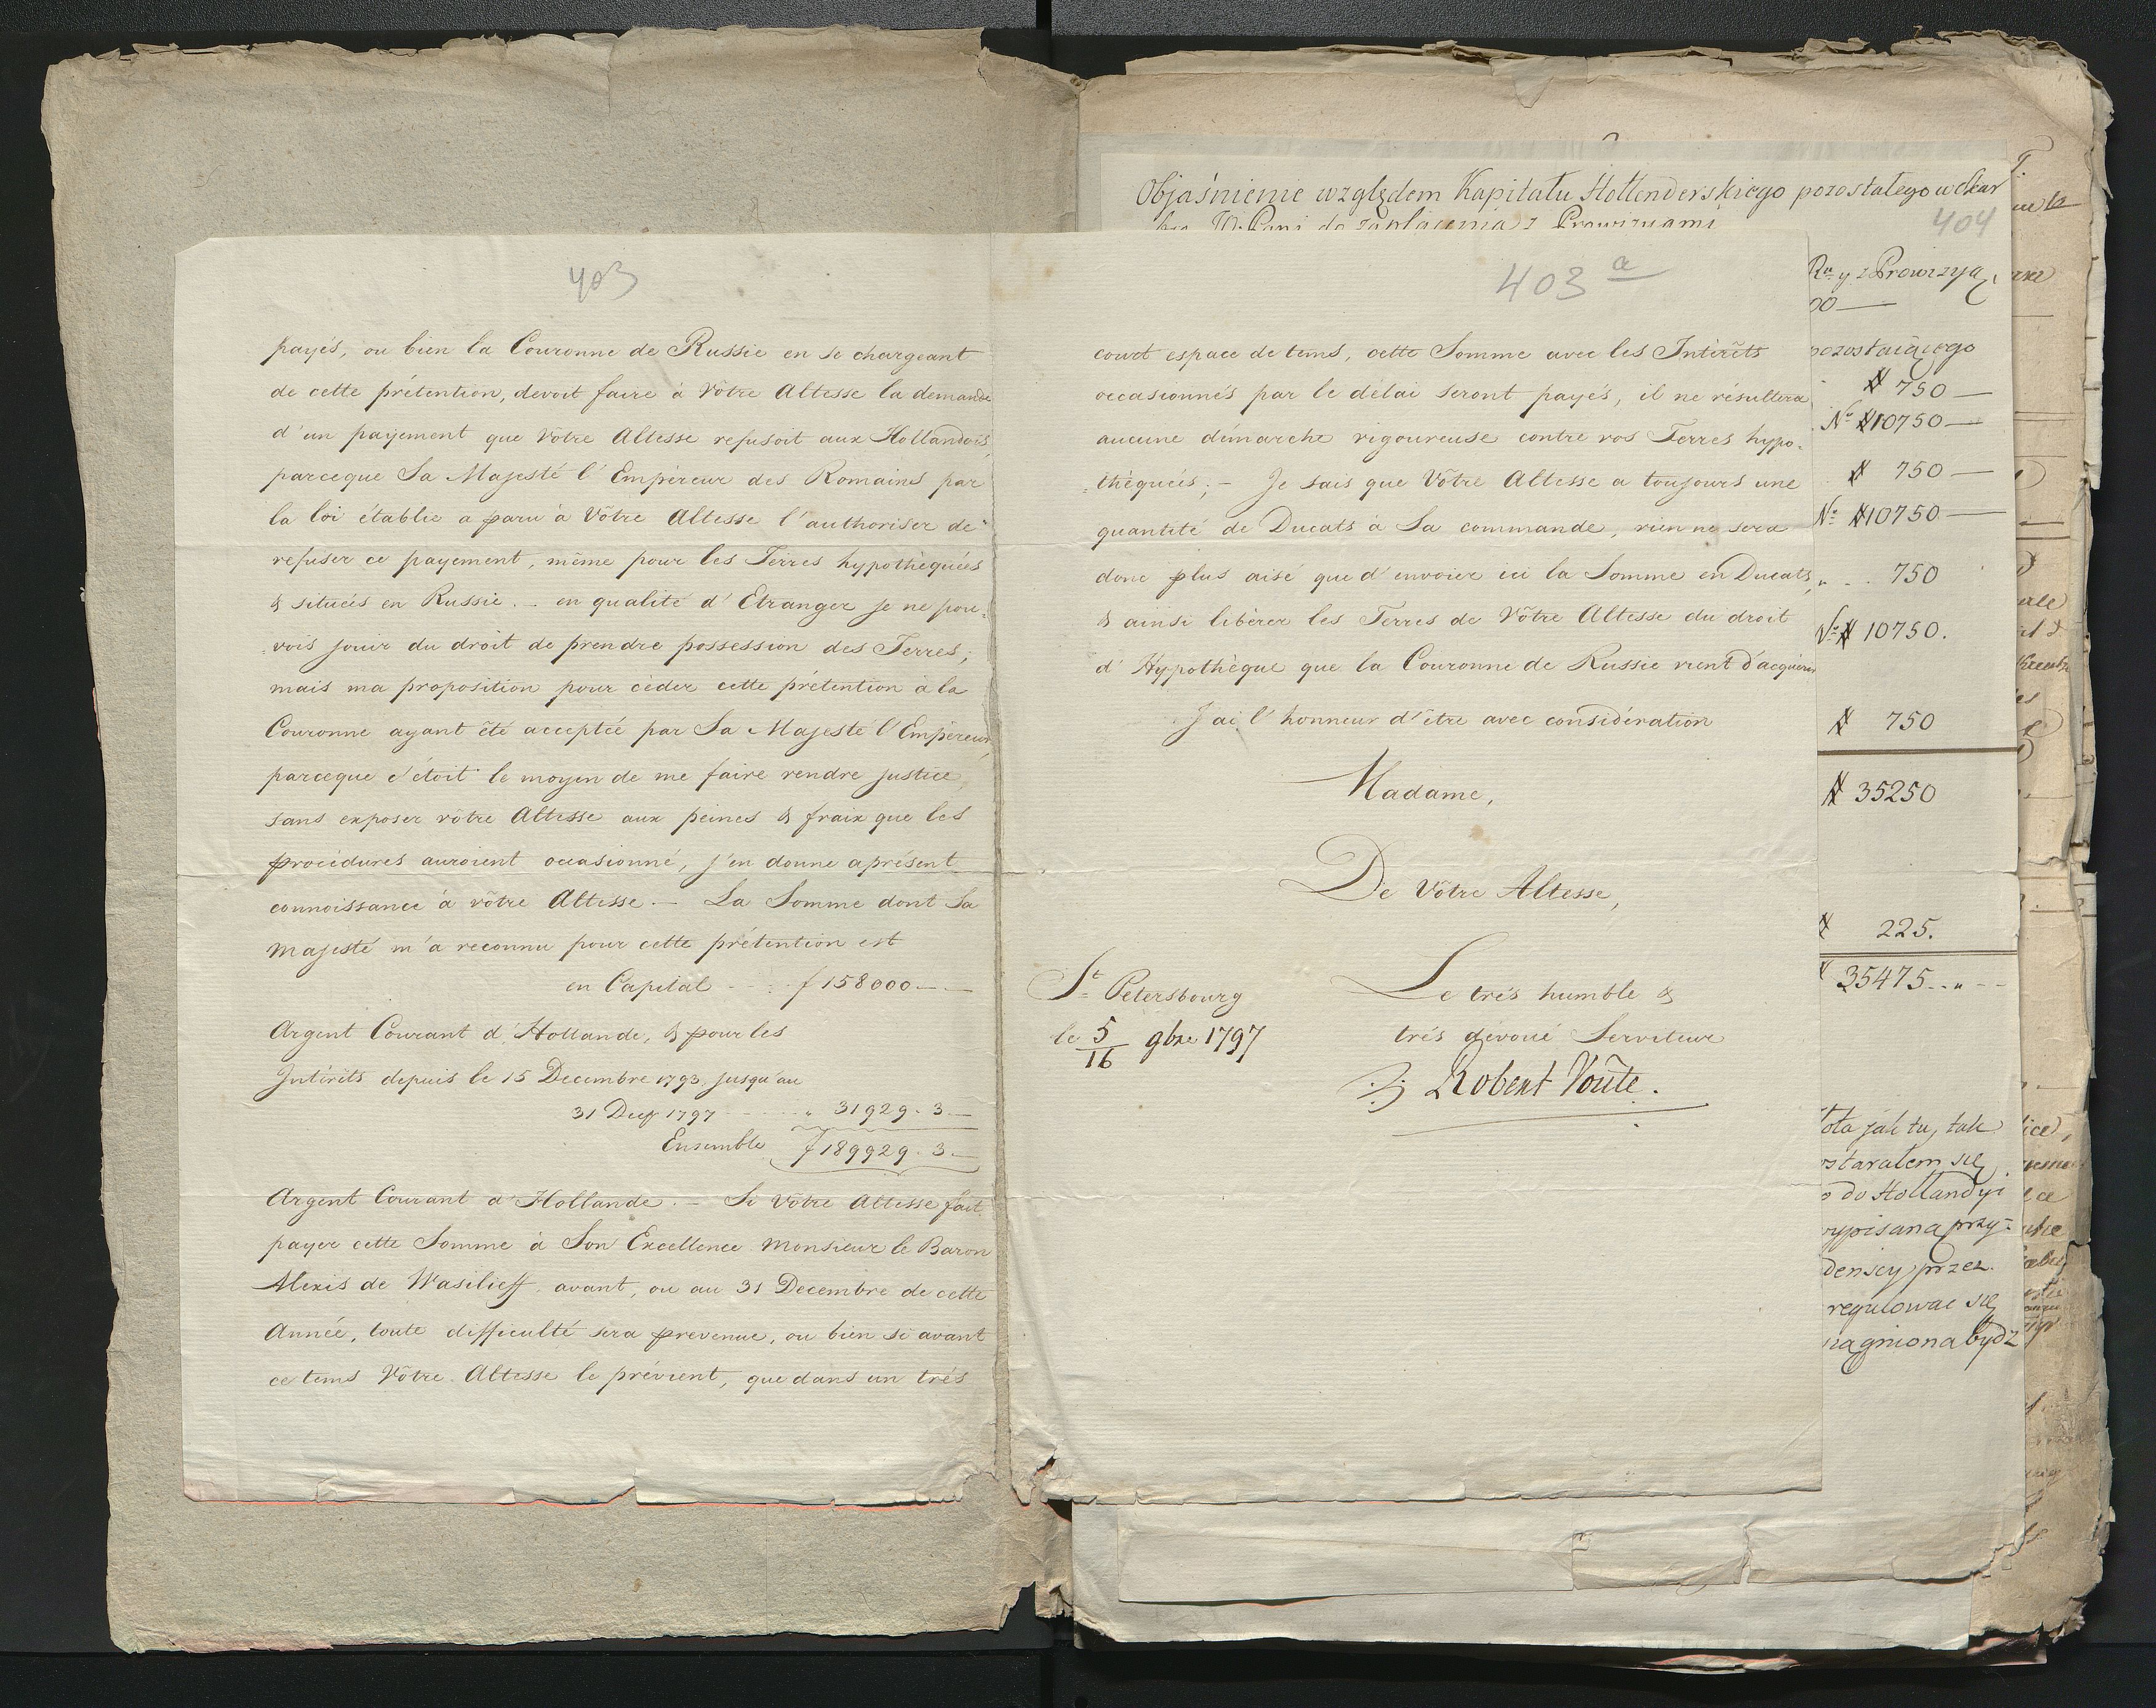 403
payés, ou bien la Couronne de Russie en se chargeant
de cette prétention, devoit faire à Vôtre Altesse la demande
d'un payement que Vôtre Altesse refusoit aux Hollandois,
parceque Sa Majesté l'Empéreur des Romains par
la loi établie a paru à Vôtre Altesse l'authoriser de
refuser ce payement, même pour les Terres hypothèquées
& situées en Russie. – en qualité d'Etranger je ne pou-
vois jouir du droit de prendre possession des Terres;
mais ma proposition pour cèder cette prétention à la
Couronne ayant êté acceptée par Sa Majesté l'Empéreur,
parceque c'étoit le moyen de me faire rendre justice,
sans exposer vôtre Altesse aux peines & fraix que les
procédures auroient occasionné, j'en donne aprésent
connoissance à vôtre Altesse. – La Somme dont Sa
Majesté m'a reconnu pour cette prétention est
en Capital - - - f 158000 —
Argent Courant d'Hollande, & pour les
Intérêts depuis le 15 Decembre 1793. jusqu'au
31 Decr 1797 - - - „ 31929. 3. —
Ensemble f 189929. 3. —
Argent Courant d'Hollande. – Si Vôtre Altesse fait
payer cette Somme à Son Excellence Monsieur le Baron
Alexis de Wasilieff, avant, ou au 31 Decembre de cette
Année, toute difficulté sera prevenue, ou bien si avant
ce tems Vôtre Altesse le prévient, que dans un trés
403 a
court espace de tems, cette Somme avec les Intèrêts
occasionnés par le délai seront payés, il ne résultera
aucune démarche rigoureuse contre vos Terres hypo-
thèquées; – Je sais que Vôtre Altesse a toujours une
quantité de Ducats à Sa commande, rien ne sera
donc plus aisé que d'envoier ici la Somme en Ducats,
& ainsi libèrer les Terres de Vôtre Altesse du droit
d'Hypothèque que la Couronne de Russie vient d'acquérir
J'ai l'honneur d'être avec considération
Madame,
De Vôtre Altesse,
Le trés humble &
trés dévoué Serviteur
Robert Voûte.
St Petersbourg
le 5/16 9bre 1797
Objaśnienie względem Kapitału Hollenderskiego pozostałego w Skar
do zapłacenia z Prowizyami
404
y z Prowizyą
00 —
pozostaiącego
# 750 —
No #10750 —
# 750 —
No #10750 —
„ - - 750
No # 10750.
# 750
# 35250
# 225.
# 35475 - - „ - -
jak tu, tak
starałem się
do Hollandyi
wypisana przy-
przez
regulować się
bydź